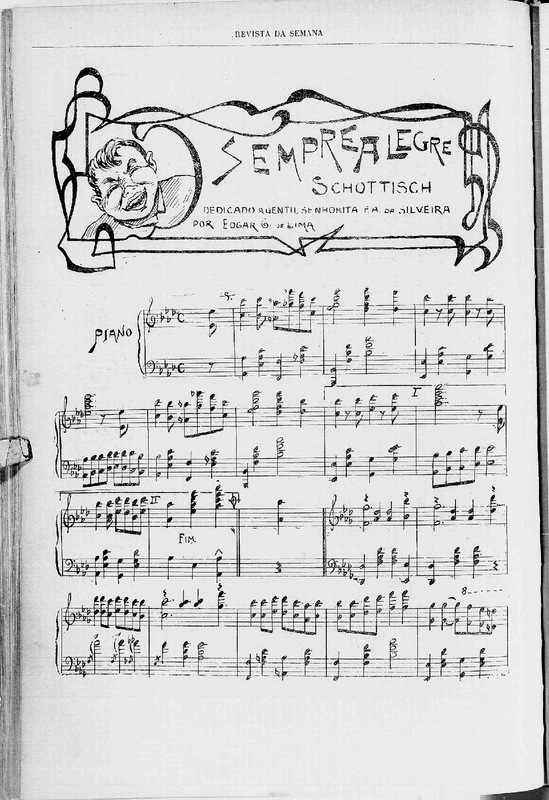 REVISTA DA SEMANA
SEMPRE ALEGRE
SCHOTTISCH
DEDICADO A GENTIL SENHORITA F. A. DA SILVEIRA
POR EDGAR G. DE LIMA
PIANO
I
II
FIM
8